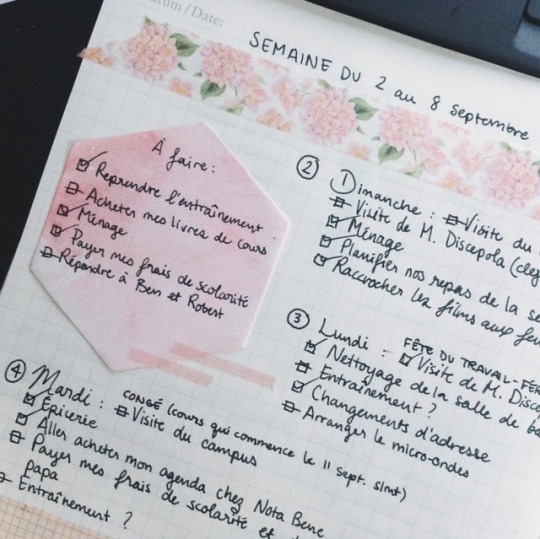 atum / Date:
SEMAINE DU 2 au 8 Septembre
À faire :
Reprendre l'entraînement
Acheter mes livres de cours
Ménage
Payer mes frais de scolarité
Répondre à Ben et Robert
② Dimanche : Visite du
Visite de M. Discepola
Ménage
Planifier nos repas de la
Raccrocher les films aux
③ Lundi : FÊTE DU TRAVAIL-FÉR
Nettoyage de la salle de
Visite de M.
Entraînement ?
Changements d'adresse
Arranger le micro-ondes
④ Mardi : CONGÉ (cours qui commence le 11 sept. slmt)
Épicerie
Visite du campus
Aller acheter mon agenda chez Nota Bene
Payer mes frais de scolarité et
papa
Entraînement ?